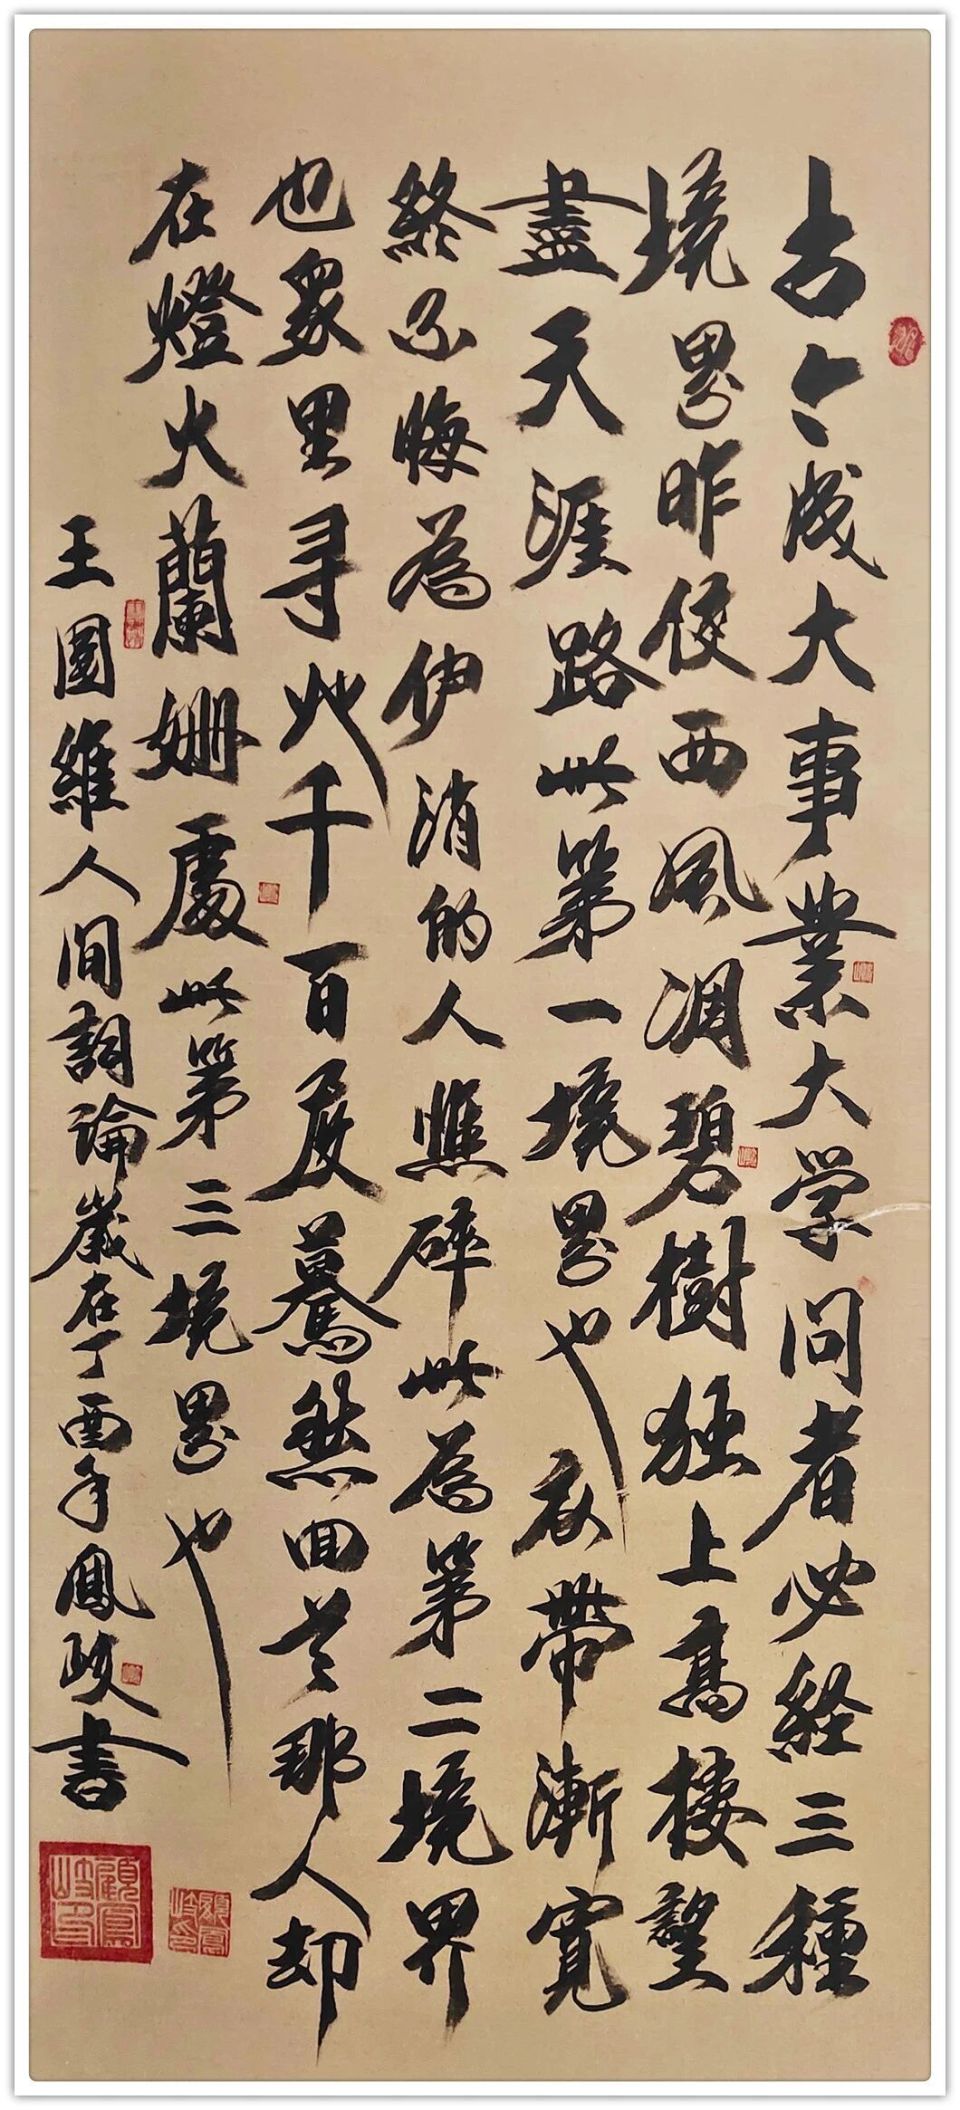 古今成大事業大学问者必経三種
境界昨夜西風凋碧樹独上高楼望
盡天涯路此第一境界也衣帶漸寬
終不悔為伊消的人憔碎此為第二境界
也衆里寻他千百度驀然回首那人却
在燈火蘭姗處此第三境界也
王國維人间詞論歲在丁酉年鳳岐書
顧鳳岐印
顧鳳岐印